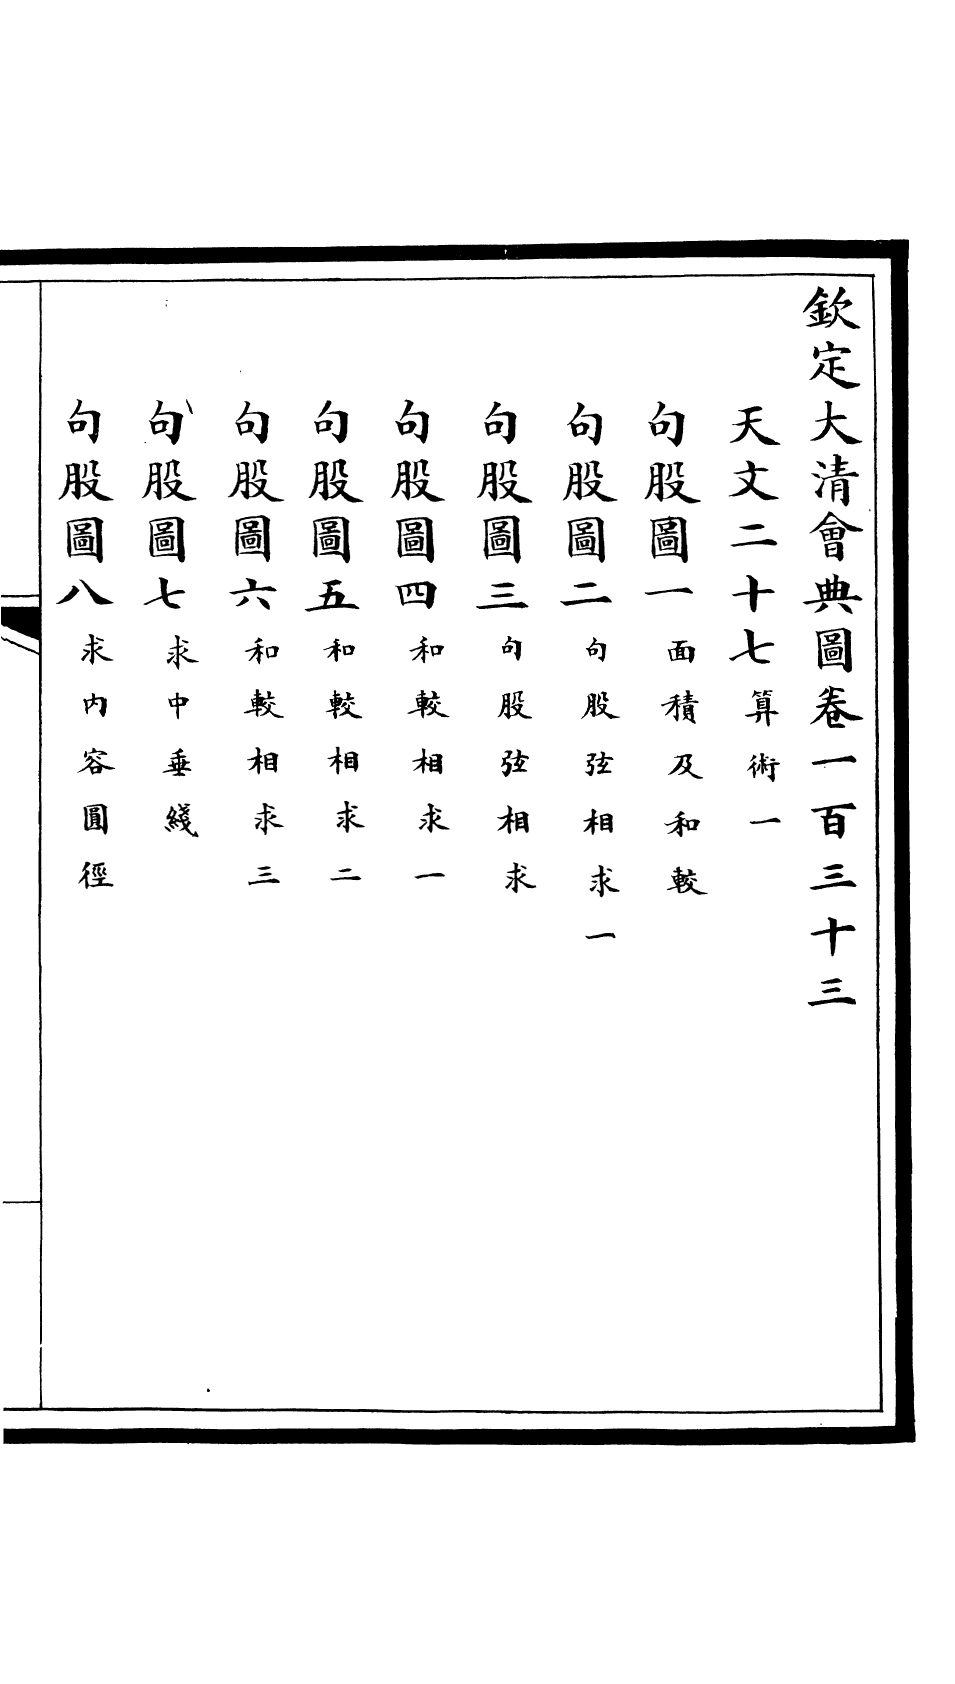 欽定大清會典圖卷一百三十三
天文二十七算術一
句股圖一面積及和較
句股圖二句股弦相求一
句股圖三句股弦相求
句股圖四和較相求一
句股圖五和較相求二
句股圖六和較相求三
句股圖七求中垂綫
句股圖八求內容圓徑